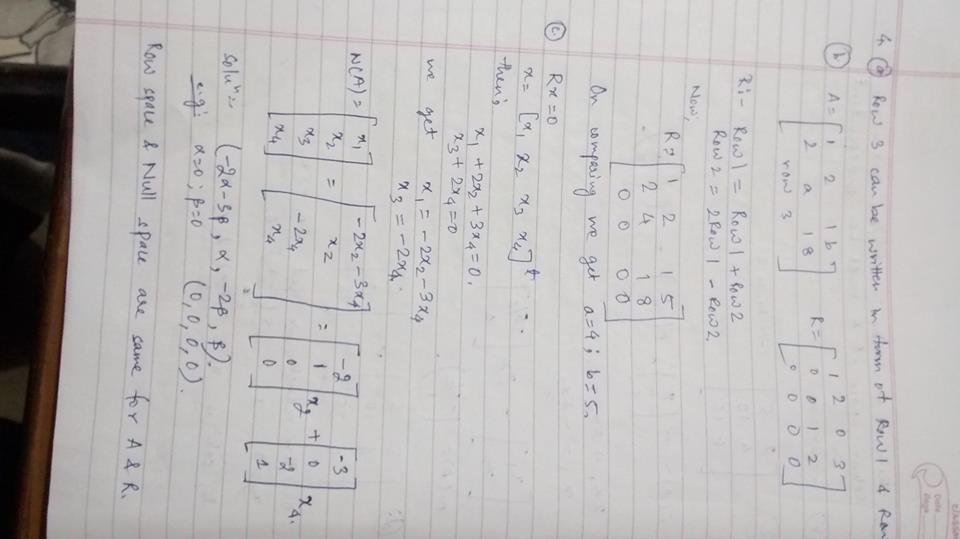 classm
Date
Page
4. (a) Row 3 can be written in term of Row 1 & Row
(b) A = [1 2 1 b
2 a 1 8
row 3] R = [1 2 0 3
0 0 1 2
0 0 0 0]
R:- Row 1 = Row 1 + Row 2
Row 2 = 2 Row 1 - Row 2.
Now,
R = [1 2 1 5
2 4 1 8
0 0 0 0]
On comparing we get a = 4 ; b = 5.
(c) Rx = 0
x = [x1 x2 x3 x4]t
then;
x1 + 2x2 + 3x4 = 0.
x3 + 2x4 = 0
we get x1 = -2x2 - 3x4
x3 = -2x4.
N(A) = [x1
x2
x3
x4] = [-2x2 - 3x4
x2
-2x4
x4] = [-2
1
0
0] x2 + [-3
0
-2
1] x4.
Soluⁿ:- (-2α - 3β, α, -2β, β).
e.g: α = 0 ; β = 0 (0, 0, 0, 0).
Row space & Null space are same for A & R.